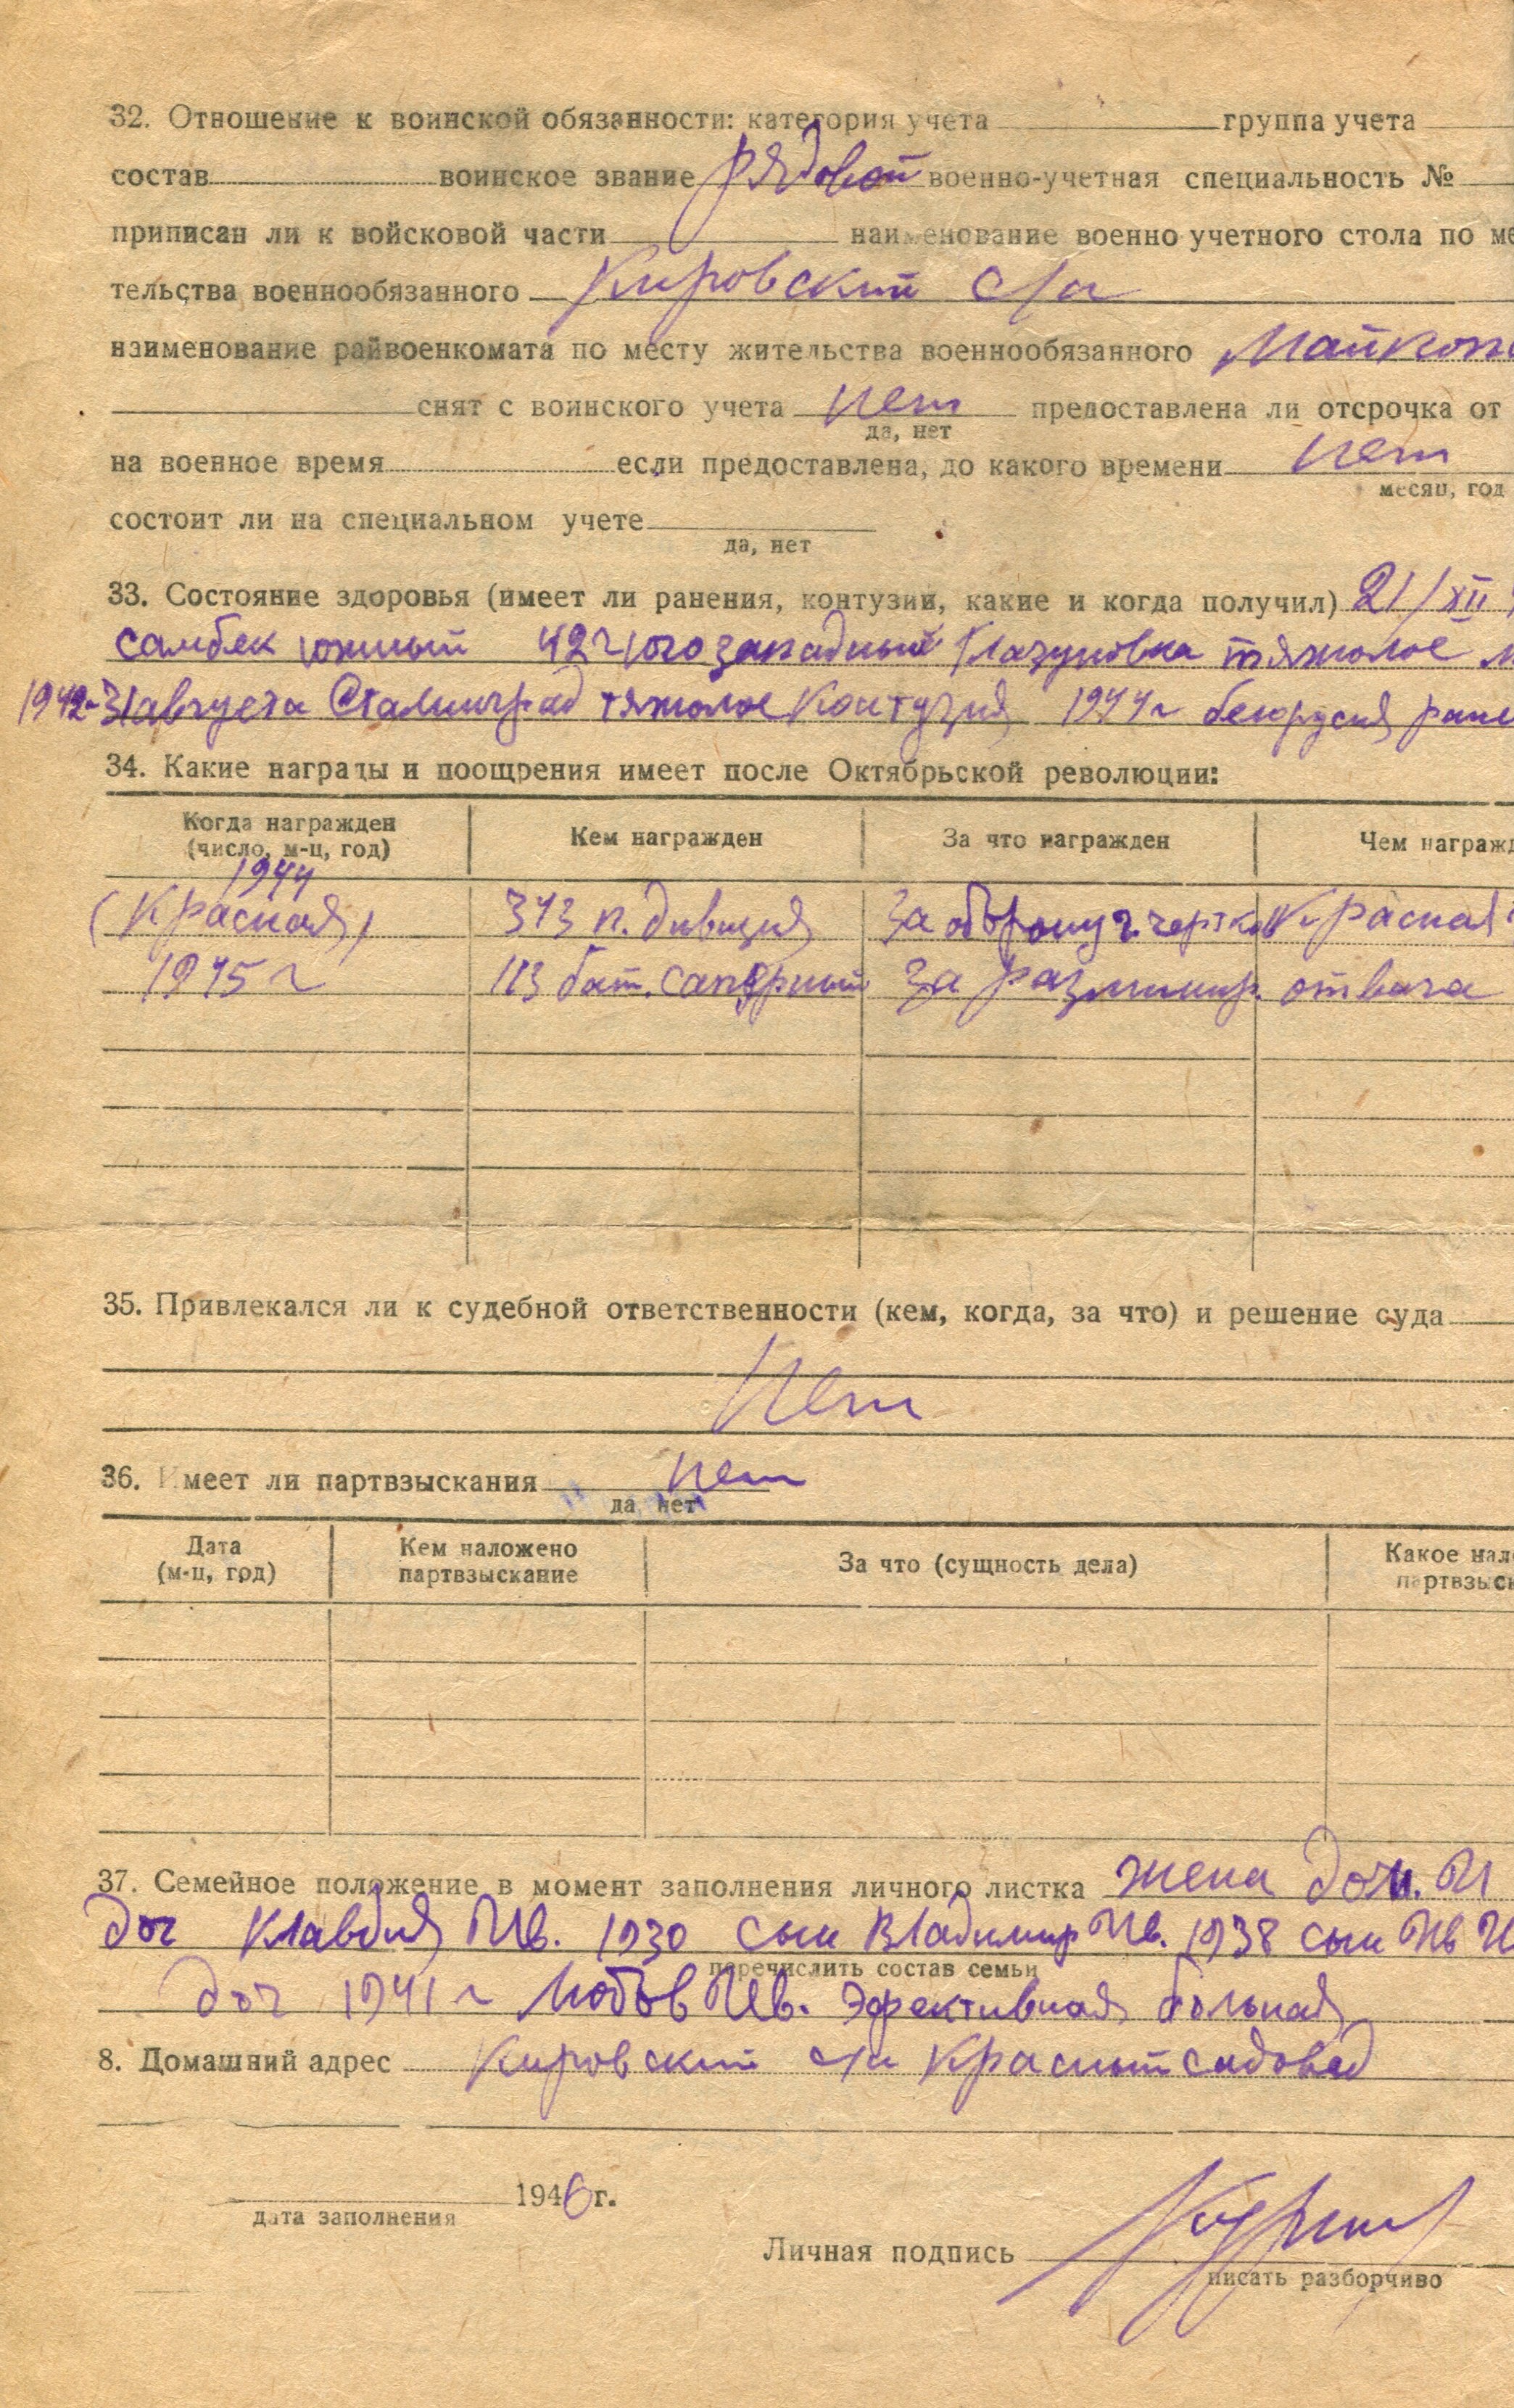 32. Отношение к воинской обязанности: категория учета группа учета
состав воинское звание рядовой военно-учетная специальность №
приписан ли к войсковой части наименование военно учетного стола по ме
тельства военнообязанного Кировский с/с
наименование райвоенкомата по месту жительства военнообязанного Майкопс
снят с воинского учета нет предоставлена ли отсрочка от
да, нет
на военное время если предоставлена, до какого времени нет
месяц, год
состоит ли на специальном учете
да, нет
33. Состояние здоровья (имеет ли ранения, контузии, какие и когда получил) 21/XII
самбек южный 42 г юго западный Глазуновка тяжолое
1942 г 31 августа Сталинград тяжолое контузия 1944 г белорусия ране
34. Какие награды и поощрения имеет после Октябрьской революции:
Когда награжден (число, м-ц, год) Кем награжден За что награжден Чем награжд
1944
(Красная) 343 п. дивизия За оборону г. Красная
1945 г 113 бат. саперный За разминир. отвага
35. Привлекался ли к судебной ответственности (кем, когда, за что) и решение суда
Нет
36. Имеет ли партвзыскания нет
да нет
Дата (м-ц, год) Кем наложено партвзыскание За что (сущность дела) Какое нало партвзыск
37. Семейное положение в момент заполнения личного листка жена
доч Клавдия Ив. 1930 сын Владимир Ив. 1938 сын Ив
перечислить состав семьи
доч 1941 г Любов Ив. Эфективная больная
8. Домашний адрес Кировский с/с Красный садовод
1946 г.
дата заполнения
Личная подпись
писать разборчиво